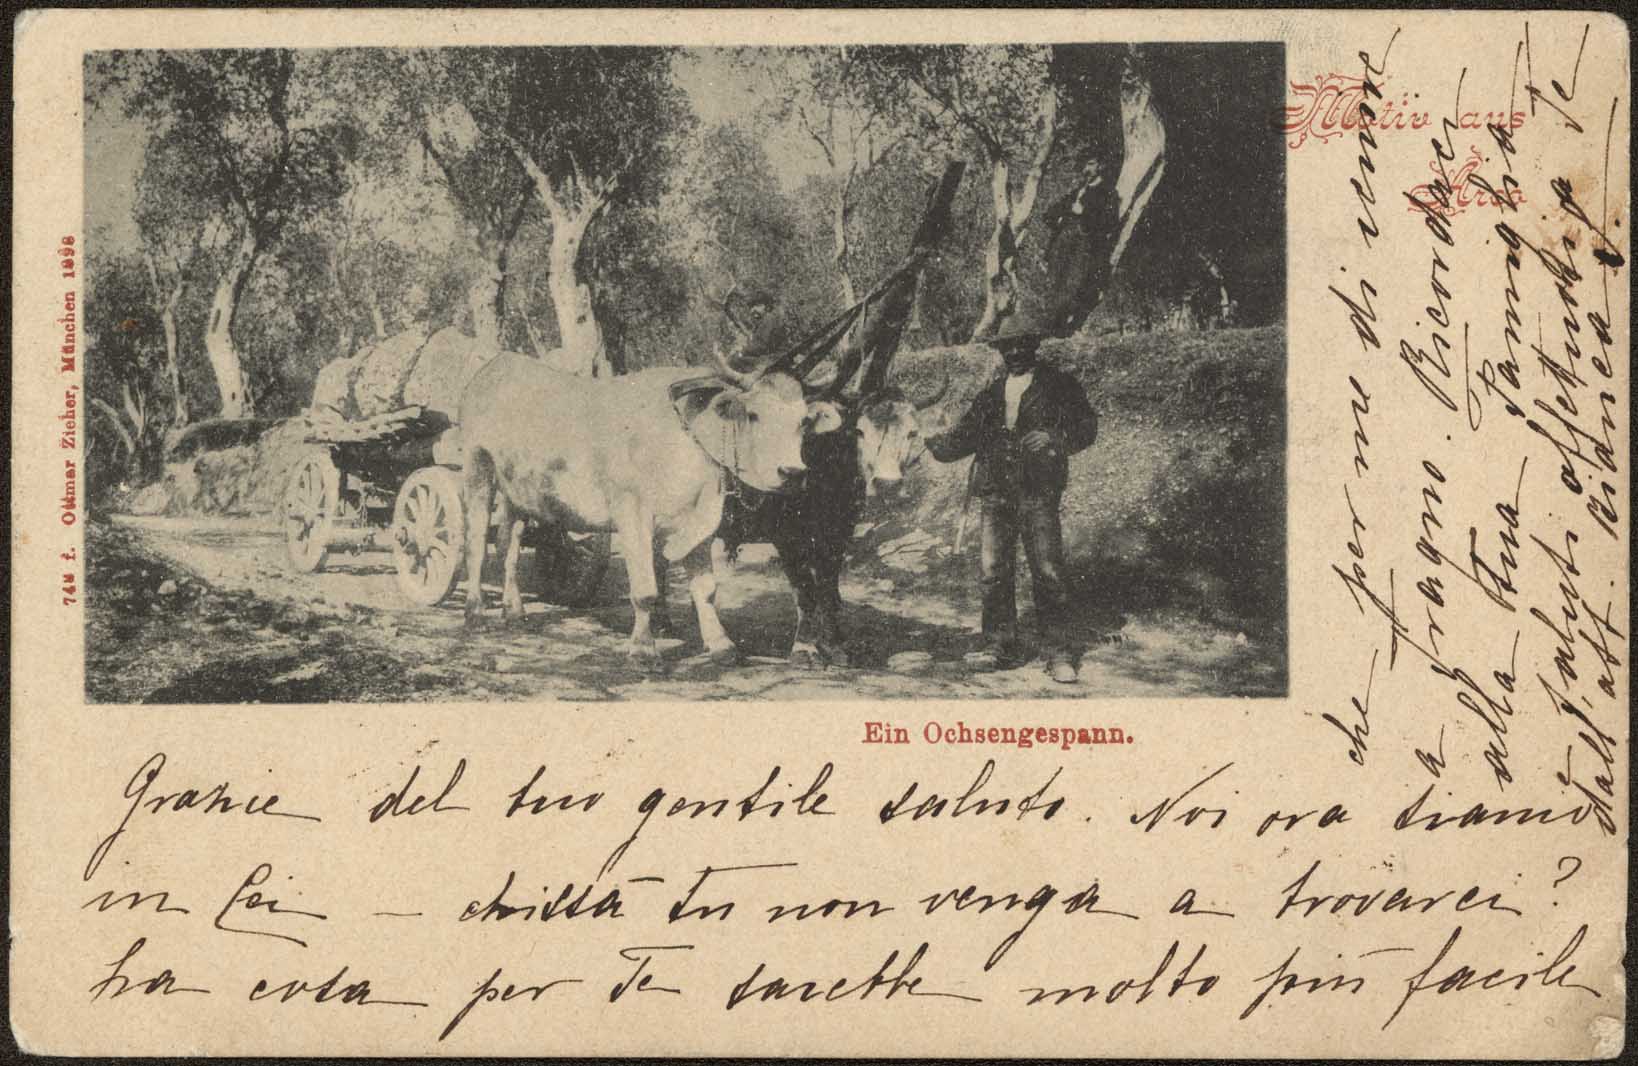 Motiv aus
Arco
744 f. Ottmar Zieher, München 1898
Ein Ochsengespann.
Grazie del tuo gentile saluto. Noi ora siamo
in Lei – chissà Tu non venga a trovarci?
ha cosa per Te sarebbe molto più facile
che per me di venire
a Pragno. Ricordaci
alla tua Famiglia
e saluti affettuosi a Te
dall'aff. Bianca J.